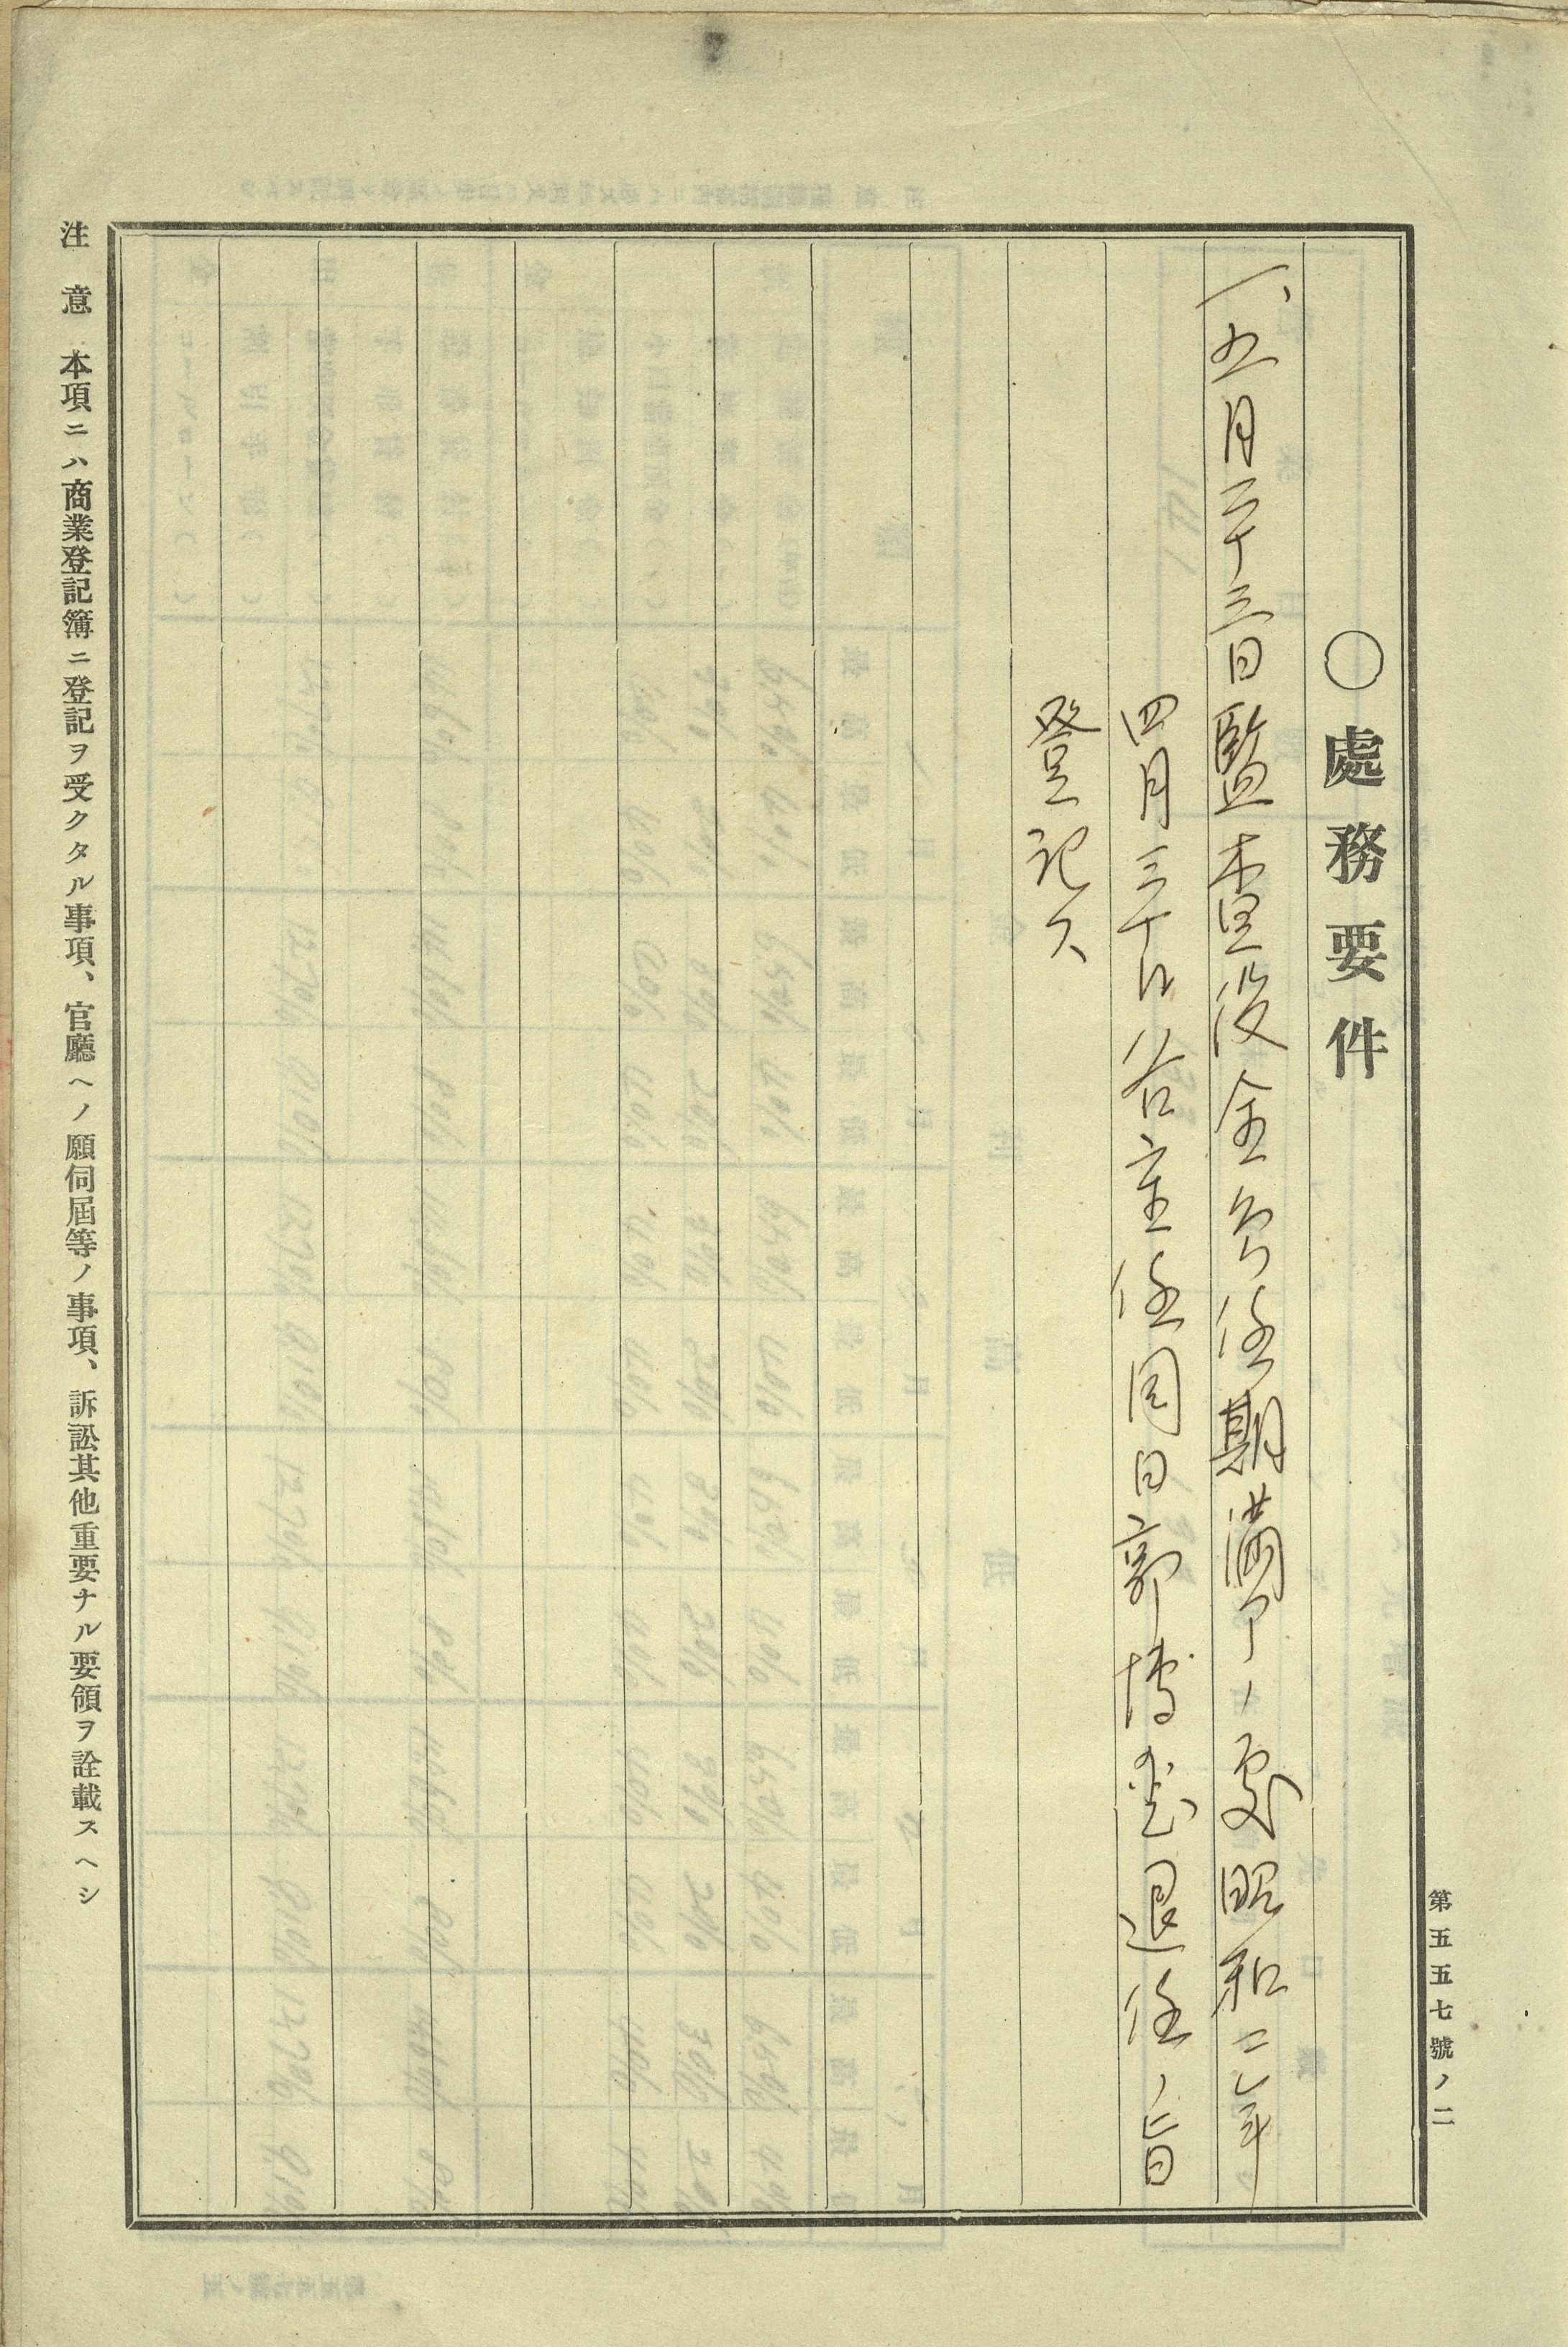 第五五七號ノ二
○處務要件
一、五月二十三日監査役全部任期滿了ノ處昭和二年
四月三十日各重任同日郭博退任ノ旨
登記ス
注意 本項ニハ商業登記簿ニ登記ヲ受クタル事項、官廳ヘノ願伺屆等ノ事項、訴訟其他重要ナル要領ヲ詮載スヘシ